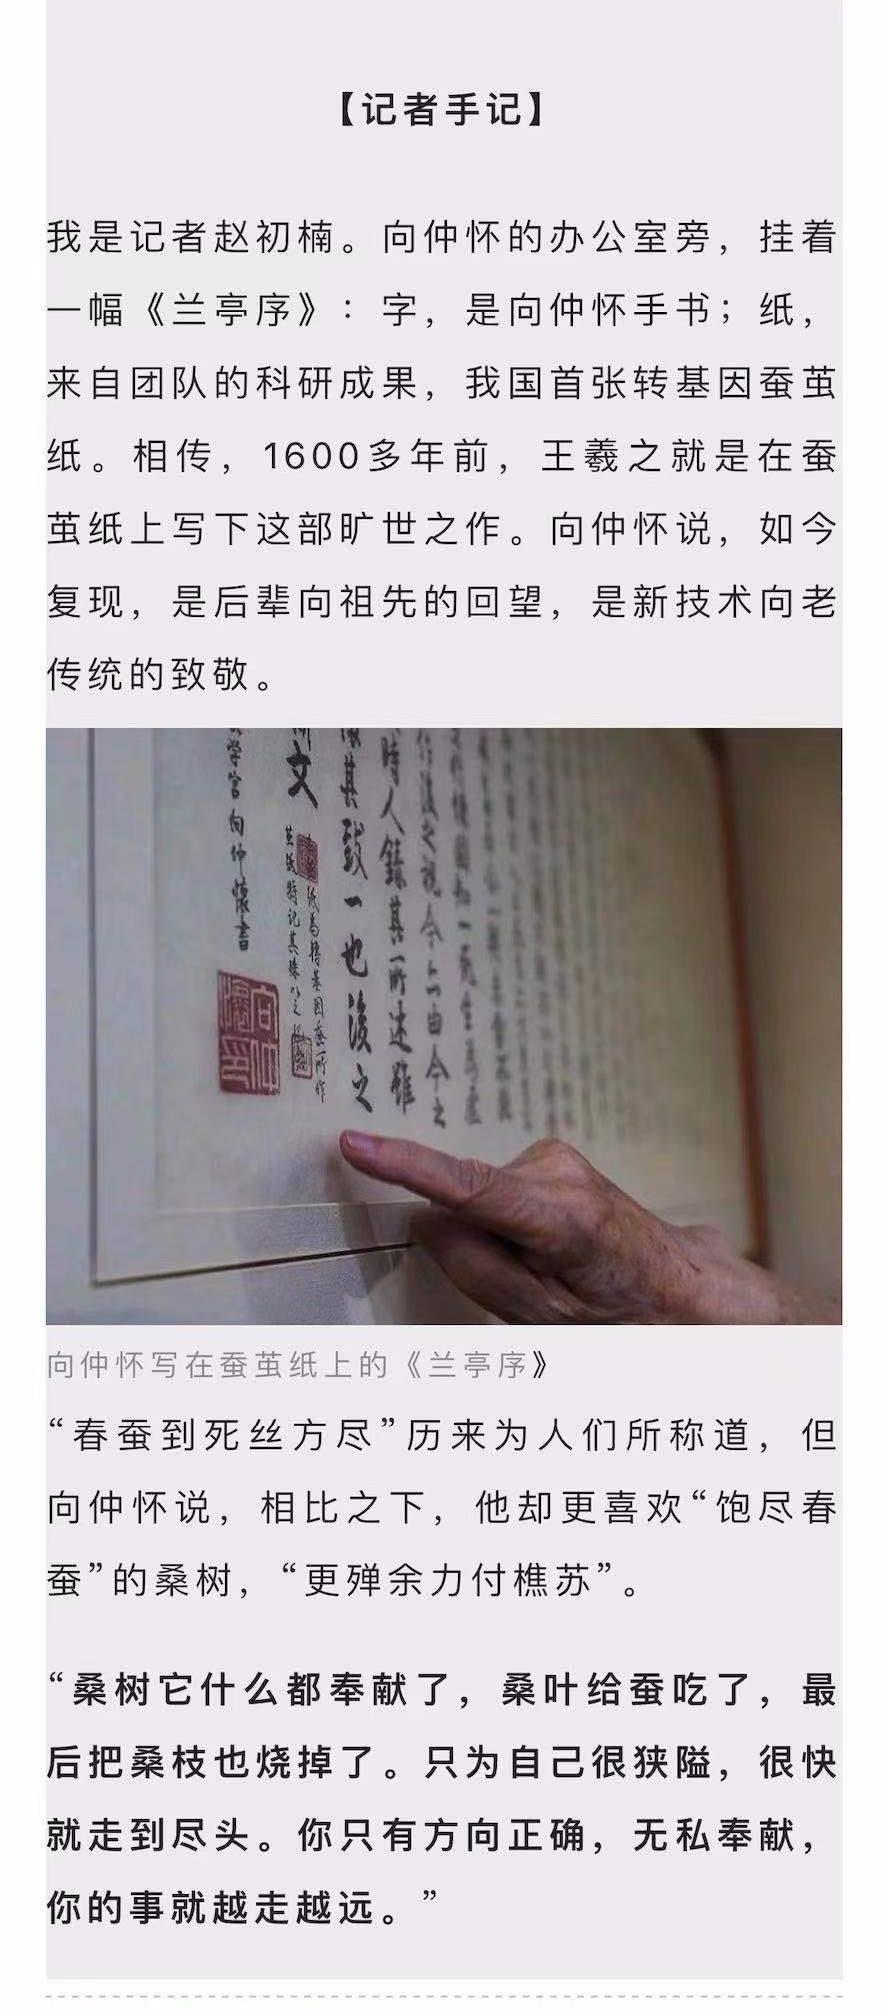 【记者手记】
我是记者赵初楠。向仲怀的办公室旁，挂着
一幅《兰亭序》：字，是向仲怀手书；纸，
来自团队的科研成果，我国首张转基因蚕茧
纸。相传，1600多年前，王羲之就是在蚕
茧纸上写下这部旷世之作。向仲怀说，如今
复现，是后辈向祖先的回望，是新技术向老
传统的致敬。
時人錄其所述雖
其致一也後之
文
纸为转基因蚕所作
茧纸特记其殊以之
学宫向仲懷書
向仲懷印
向仲怀写在蚕茧纸上的《兰亭序》
“春蚕到死丝方尽”历来为人们所称道，但
向仲怀说，相比之下，他却更喜欢“饱尽春
蚕”的桑树，“更殚余力付樵苏”。
“桑树它什么都奉献了，桑叶给蚕吃了，最
后把桑枝也烧掉了。只为自己很狭隘，很快
就走到尽头。你只有方向正确，无私奉献，
你的事就越走越远。”